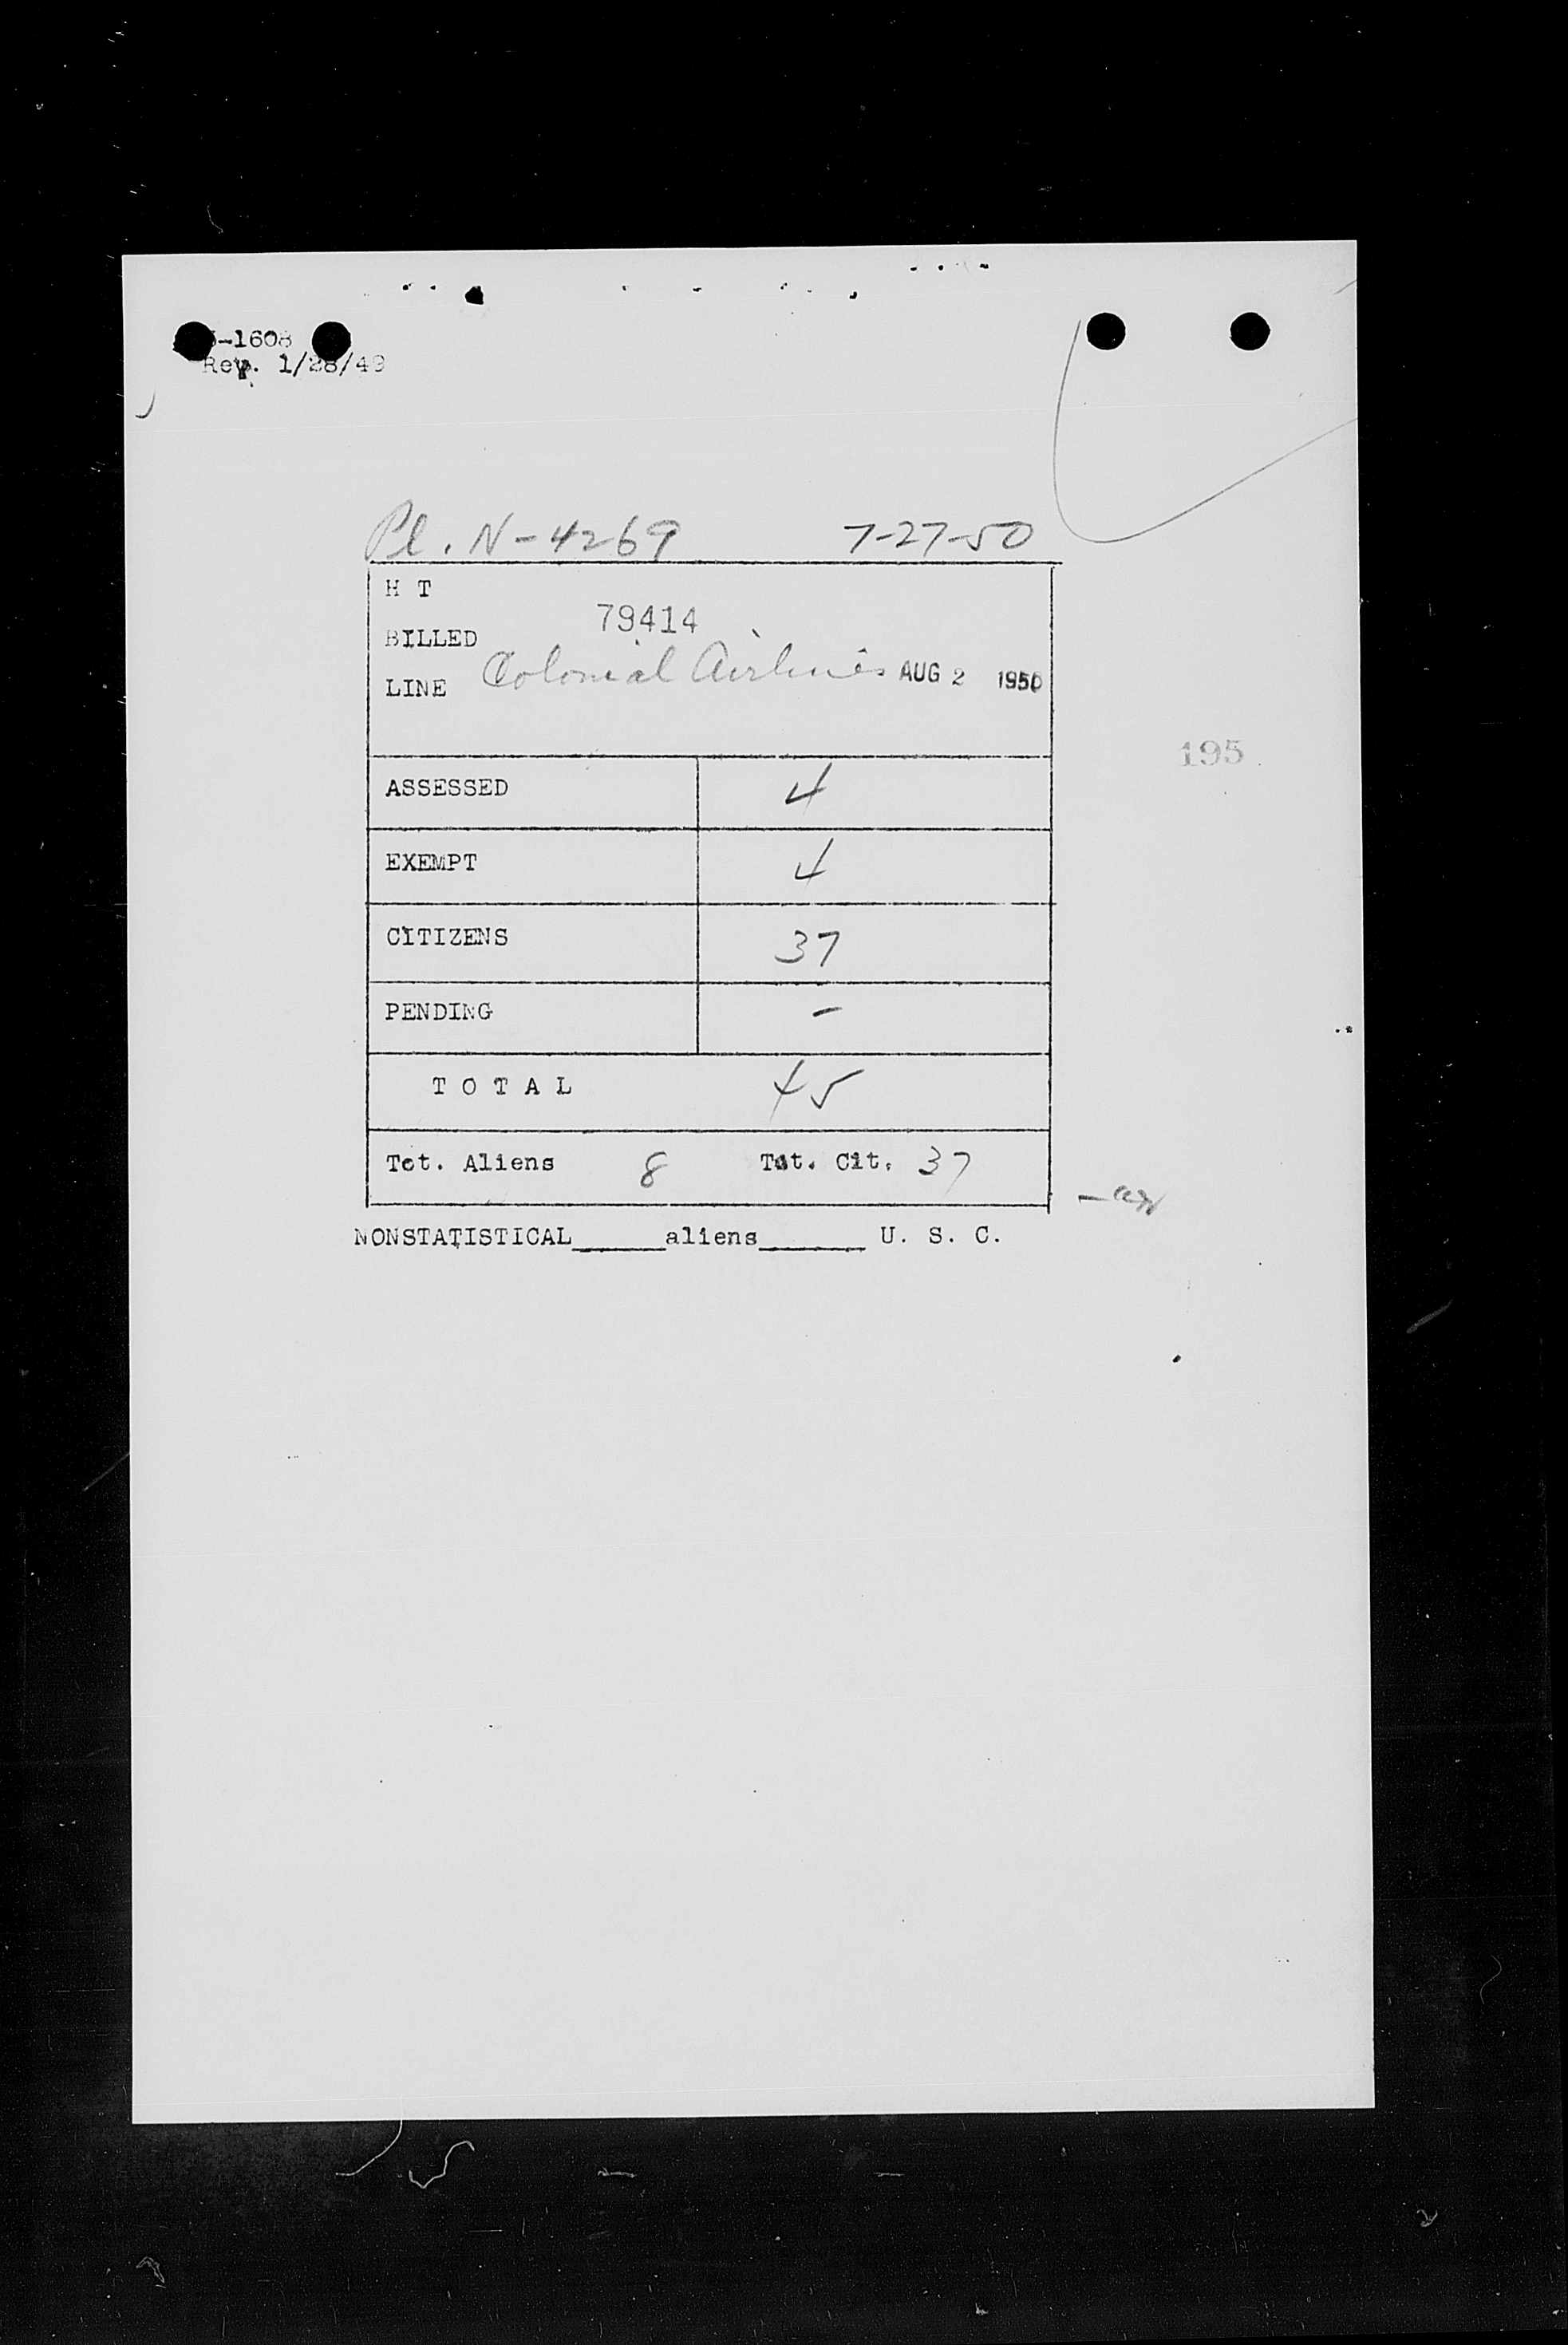 -1608
Rev. 1/28/49
Pl. N-4269 7-27-50
H T
79414
BILLED
LINE Colonial Airlines AUG 2 1950
195
ASSESSED 4
EXEMPT 4
CITIZENS 37
PENDING -
T O T A L 45
Tot. Aliens 8 Tot. Cit. 37
NONSTATISTICAL______aliens_______ U. S. C.